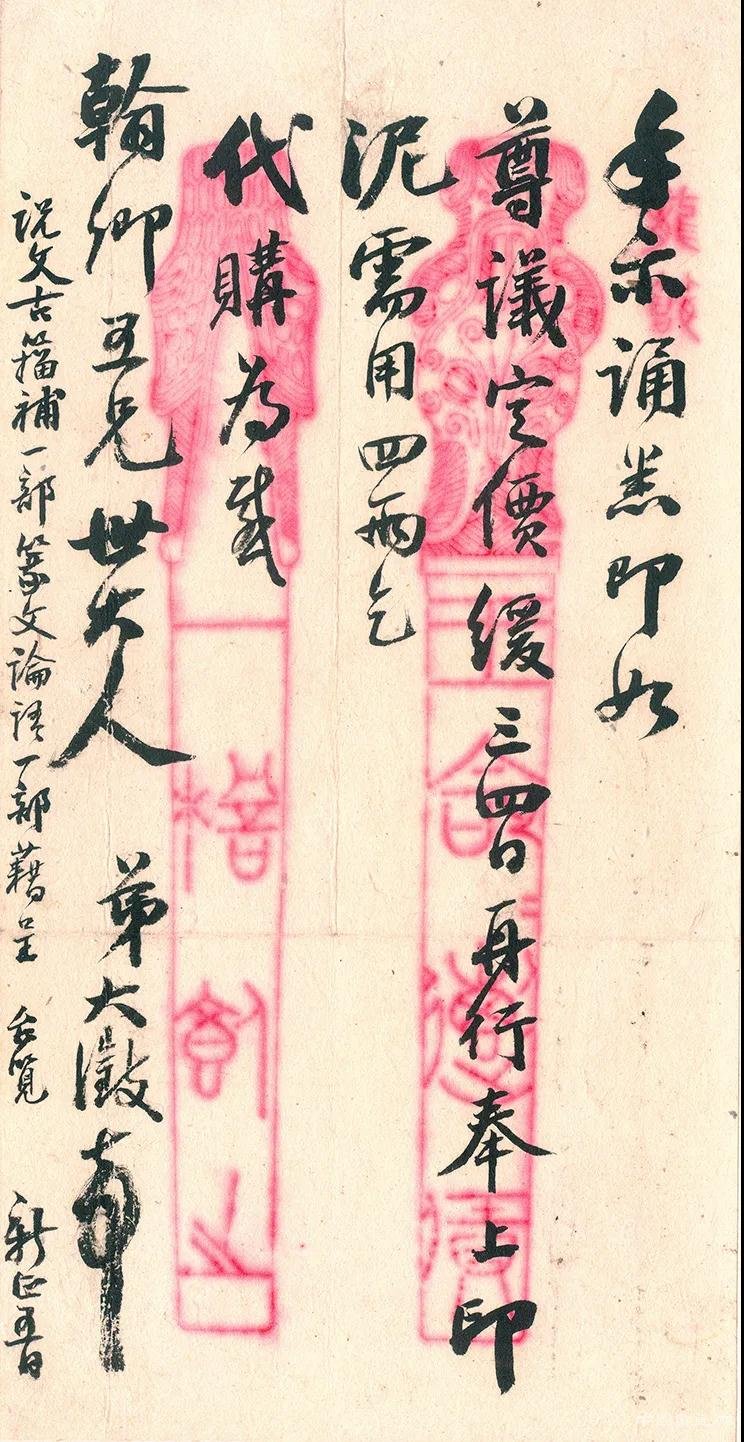 手示誦悉即如
尊議定價緩三四日再行奉上印
泥需用四兩乞
代購為感
翰卿五兄世大人 弟大澂頓首
說文古籀補一部篆文論語一部藉呈 台覽 新正五日